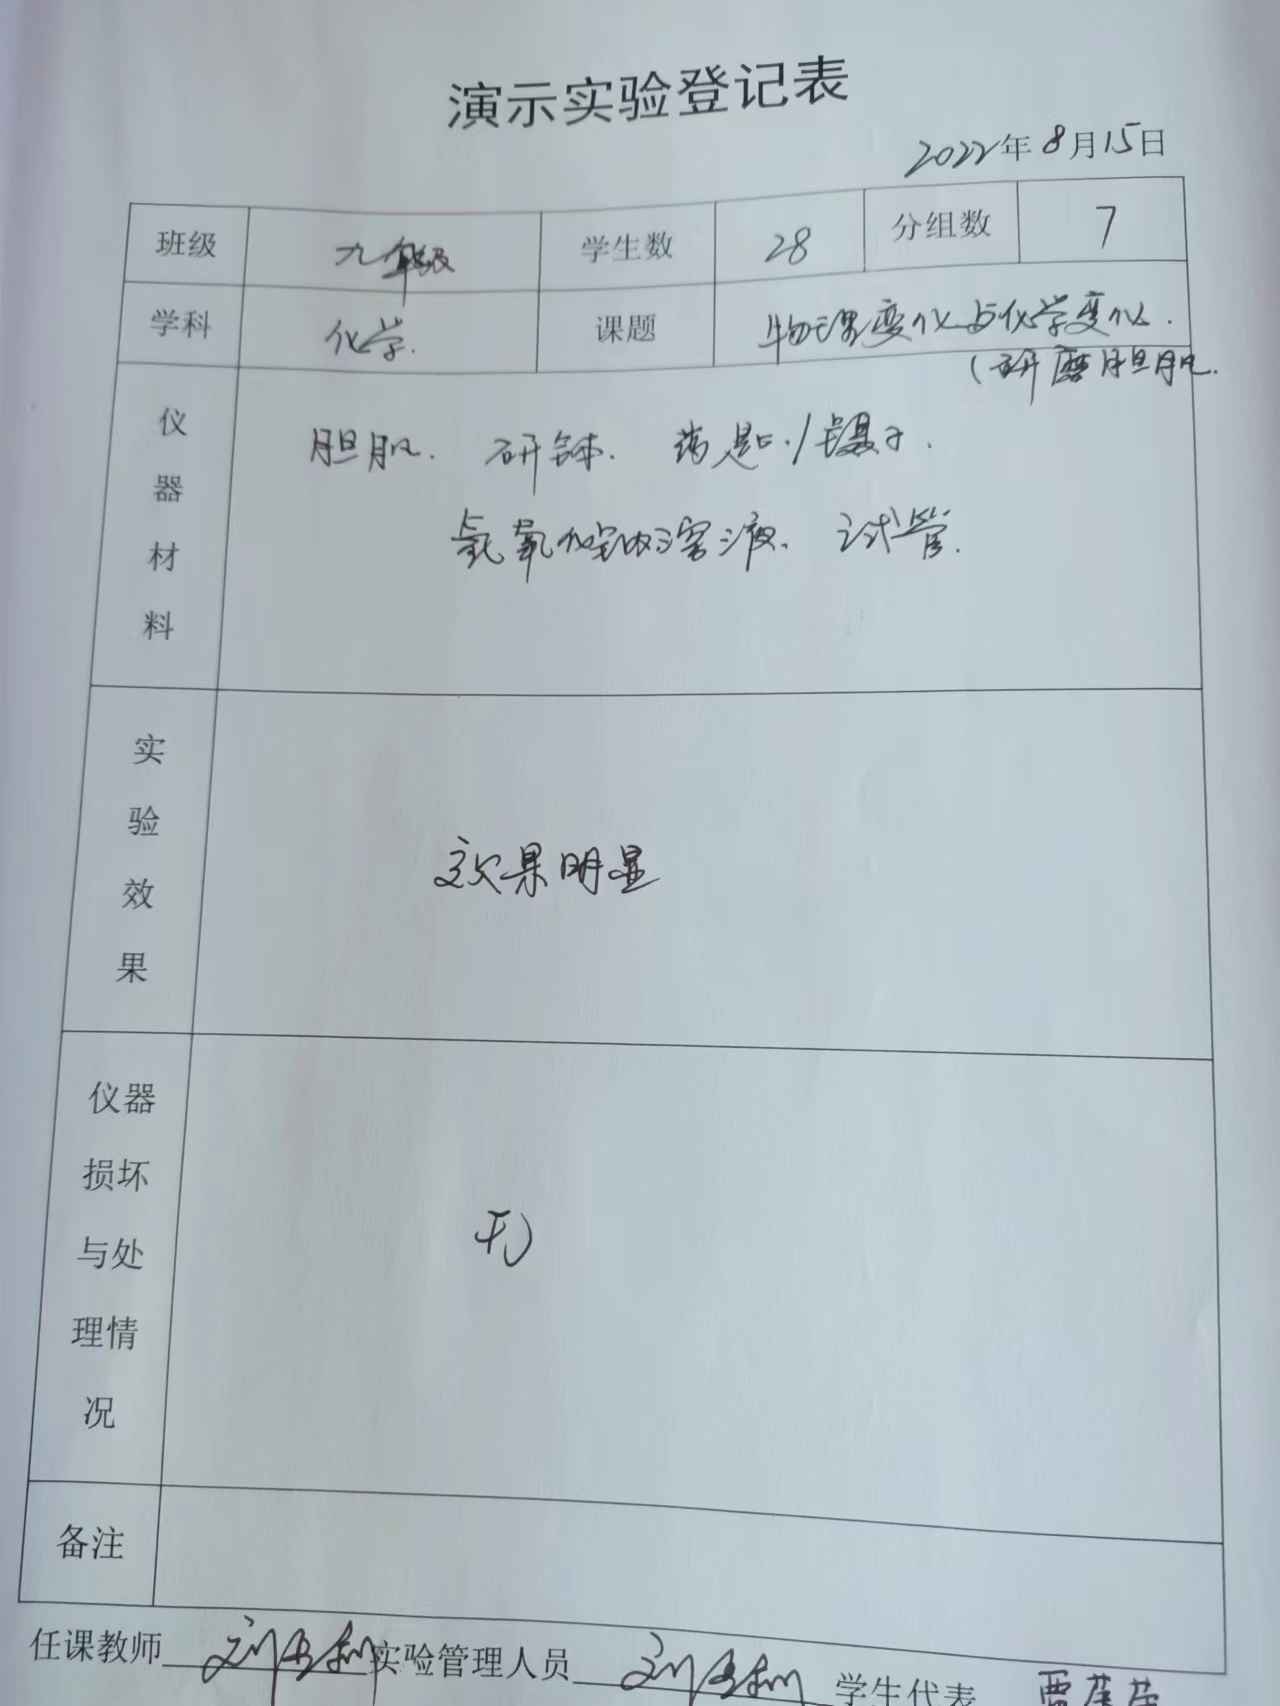 演示实验登记表
2022年8月15日
班级 九年级 学生数 28 分组数 7
学科 化学. 课题 物理变化与化学变化.
(研磨胆矾.
仪器材料 胆矾. 研钵. 药匙./镊子.
氢氧化钠溶液. 试管.
实验效果 效果明显
仪器损坏与处理情况 无
备注
任课教师 实验管理人员 学生代表